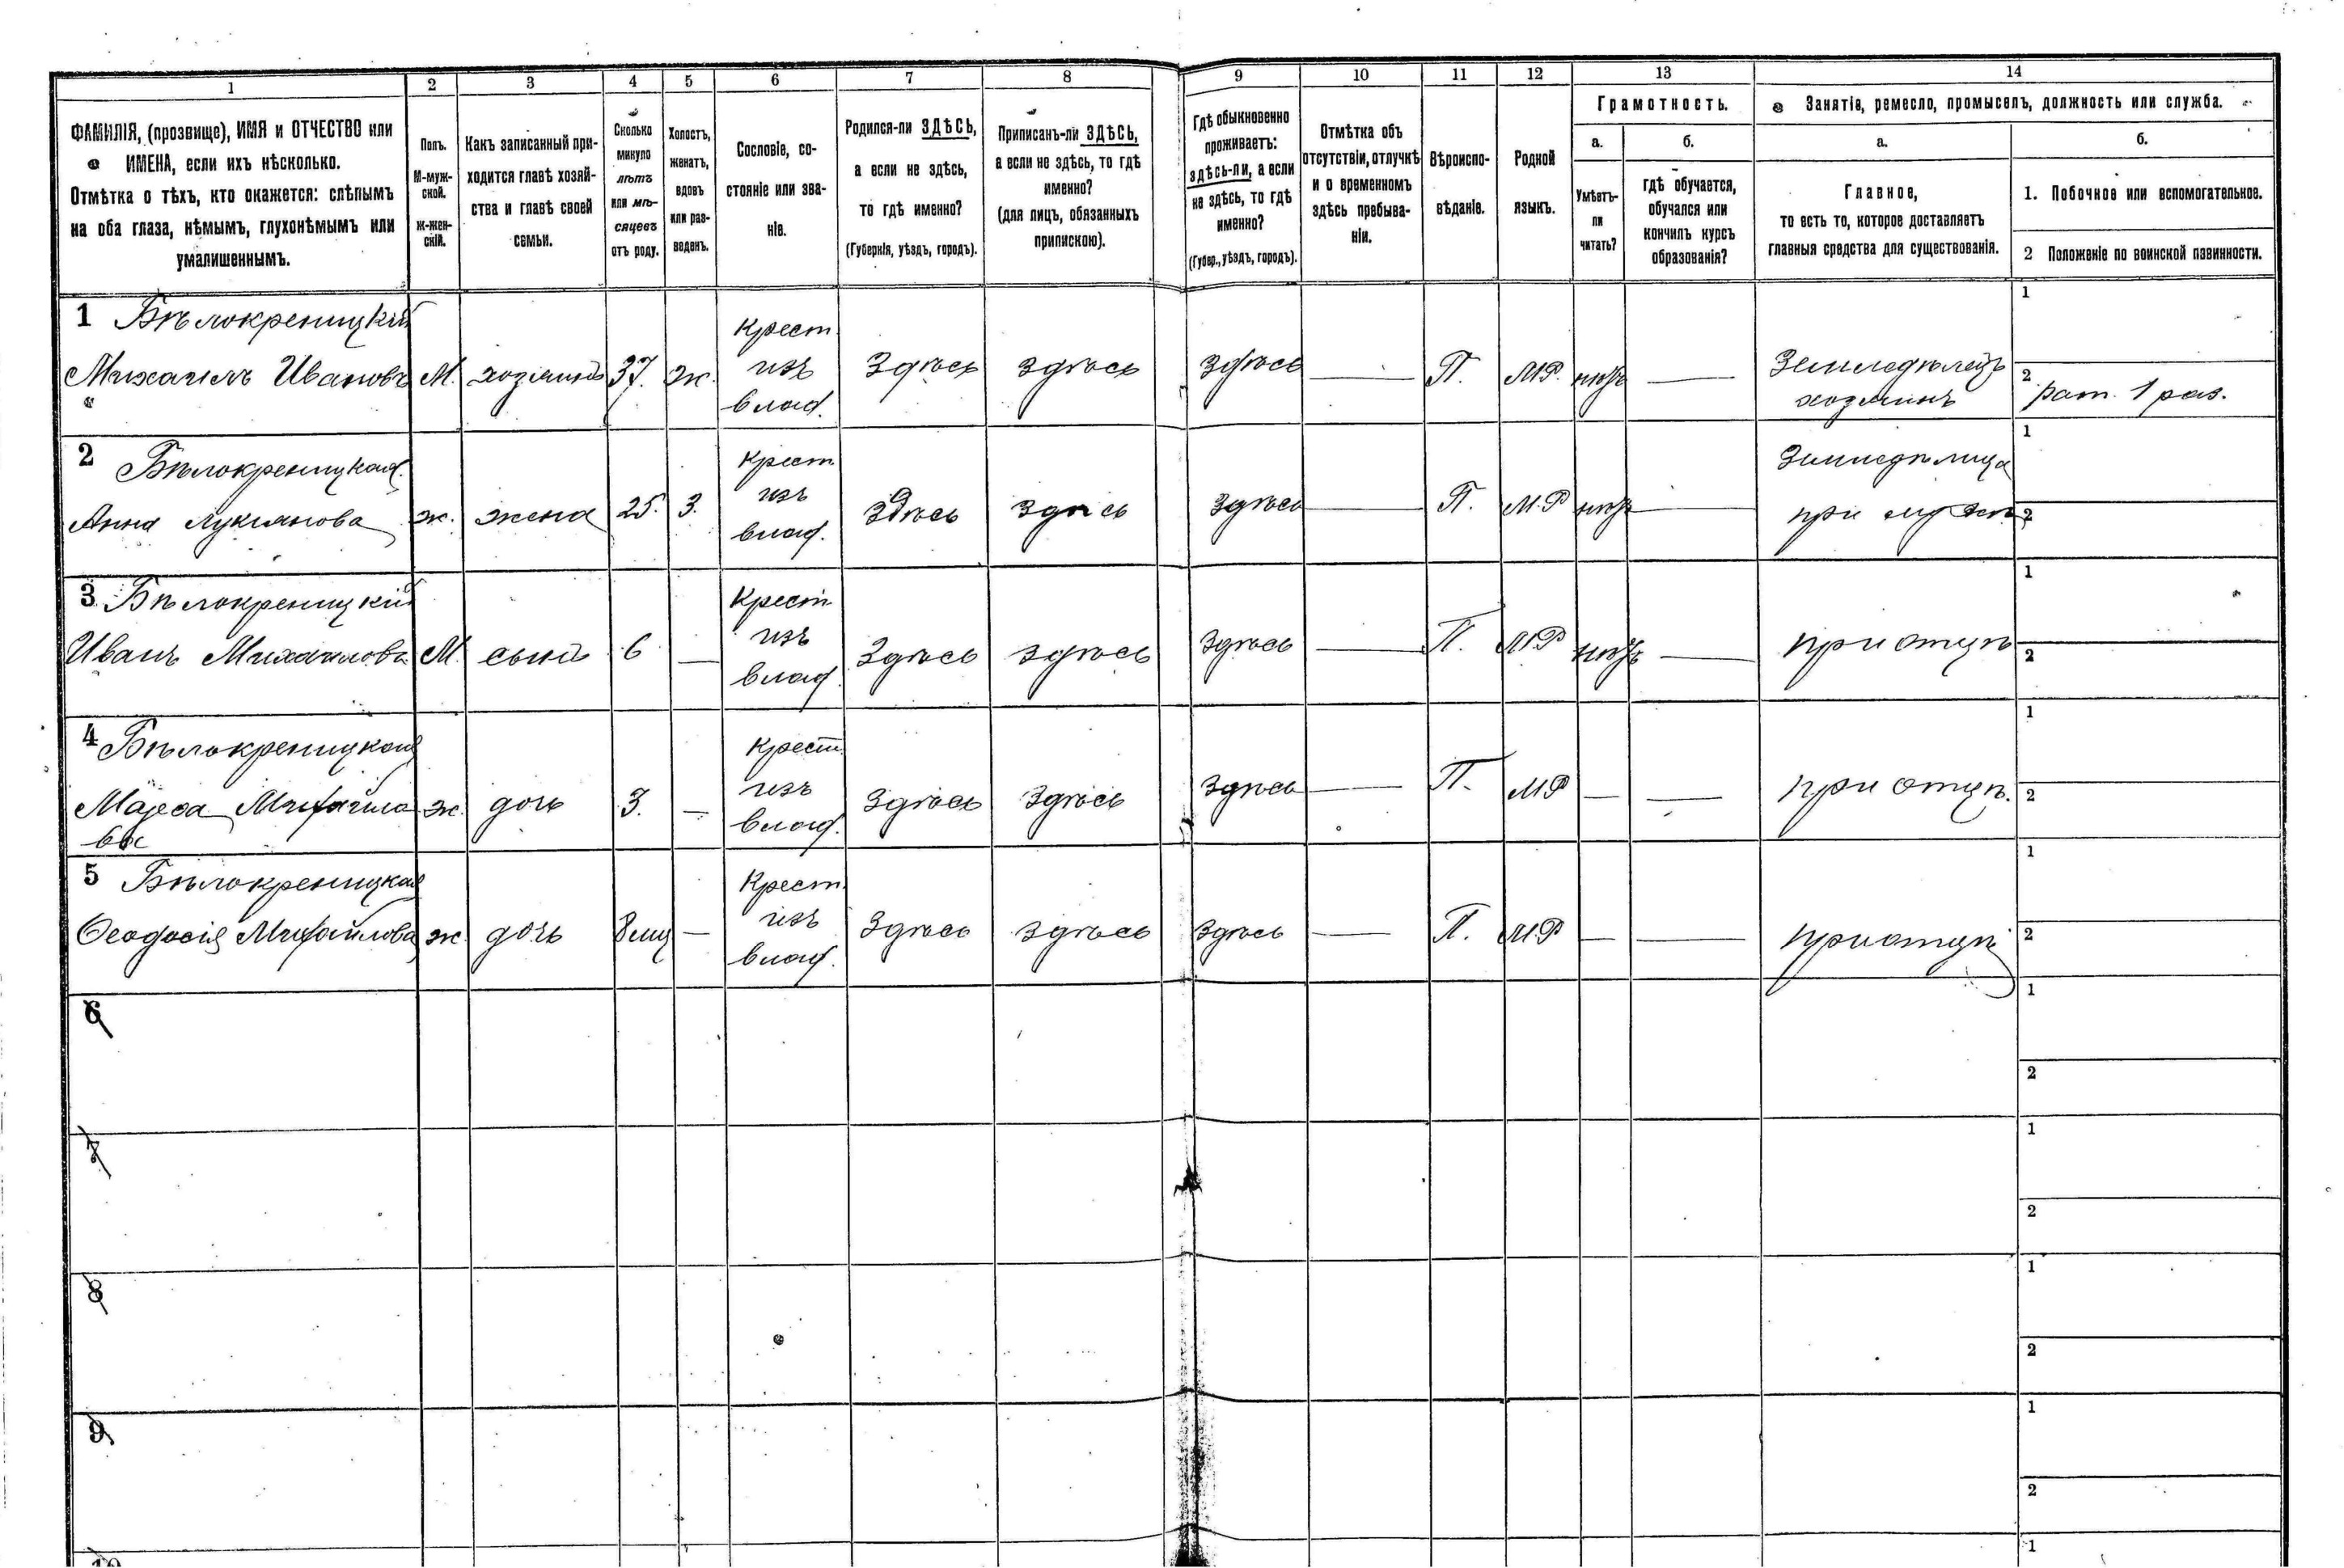 1 2 3 4 5 6 7 8 9 10 11 12 13 14
ФАМИЛІЯ, (прозвище), ИМЯ и ОТЧЕСТВО или
ИМЕНА, если ихъ нѣсколько.
Отмѣтка о тѣхъ, кто окажется: слѣпымъ
на оба глаза, нѣмымъ, глухонѣмымъ или
умалишеннымъ.
Полъ.
М-муж-
ской.
Ж-жен-
скій.
Какъ записанный при-
ходится главѣ хозяй-
ства и главѣ своей
семьи.
Сколько
минуло
лѣтъ
или мѣ-
сяцевъ
отъ роду.
Холостъ,
женатъ,
вдовъ
или раз-
веденъ.
Сословіе, со-
стояніе или зва-
ніе.
Родился-ли ЗДѢСЬ,
а если не здѣсь,
то гдѣ именно?
(Губернія, уѣздъ, городъ).
Приписанъ-ли ЗДѢСЬ,
а если не здѣсь, то гдѣ
именно?
(для лицъ, обязанныхъ
припискою).
Гдѣ обыкновенно
проживаетъ:
здѣсь-ли, а если
не здѣсь, то гдѣ
именно?
(Губер., уѣздъ, городъ).
Отмѣтка объ
отсутствіи, отлучкѣ
и о временномъ
здѣсь пребыва-
ніи.
Вѣроиспо-
вѣданіе.
Родной
языкъ.
Грамотность.
а.
Умѣетъ-
ли
читать?
б.
гдѣ обучается,
обучался или
кончилъ курсъ
образованія?
Занятіе, ремесло, промыселъ, должность или служба.
а.
Главное,
то есть то, которое доставляетъ
главныя средства для существованія.
б.
1. Побочное или вспомогательное.
2 Положеніе по воинской повинности.
1 Бѣлокреницкій
Михаилъ Ивановъ М. хозяинъ 37. ж.
Крест
изъ
влад.
Здѣсь здѣсь здѣсь — П. МР. нѣтъ —
Земледѣлецъ
хозяинъ
1
2 рат. 1 раз.
2 Бѣлокреницкая
Анна Лукіянова ж. жена 25. З.
Крест
изъ
влад.
здѣсь здѣсь здѣсь — П. М.Р нѣтъ —
Земледѣлица
при мужѣ
1
2
3 Бѣлокреницкій
Иванъ Михаилова М. сынъ 6 —
Крест
изъ
влад.
Здѣсь здѣсь здѣсь — П. МР нѣтъ —
при отцѣ
1
2
4 Бѣлокреницкая
Михайло ж. дочь 3. —
ва
Крест
изъ
влад.
Здѣсь здѣсь здѣсь — П. МР — —
при отцѣ.
1
2
5 Бѣлокреницкая
Ѳеодосія Михайлова ж. дочь 8 мц —
Крест.
изъ
влад.
Здѣсь здѣсь здѣсь — П. М.Р — —
при отцѣ
1
2
6
1
2
7
1
2
8
1
2
9
1
2
10
1